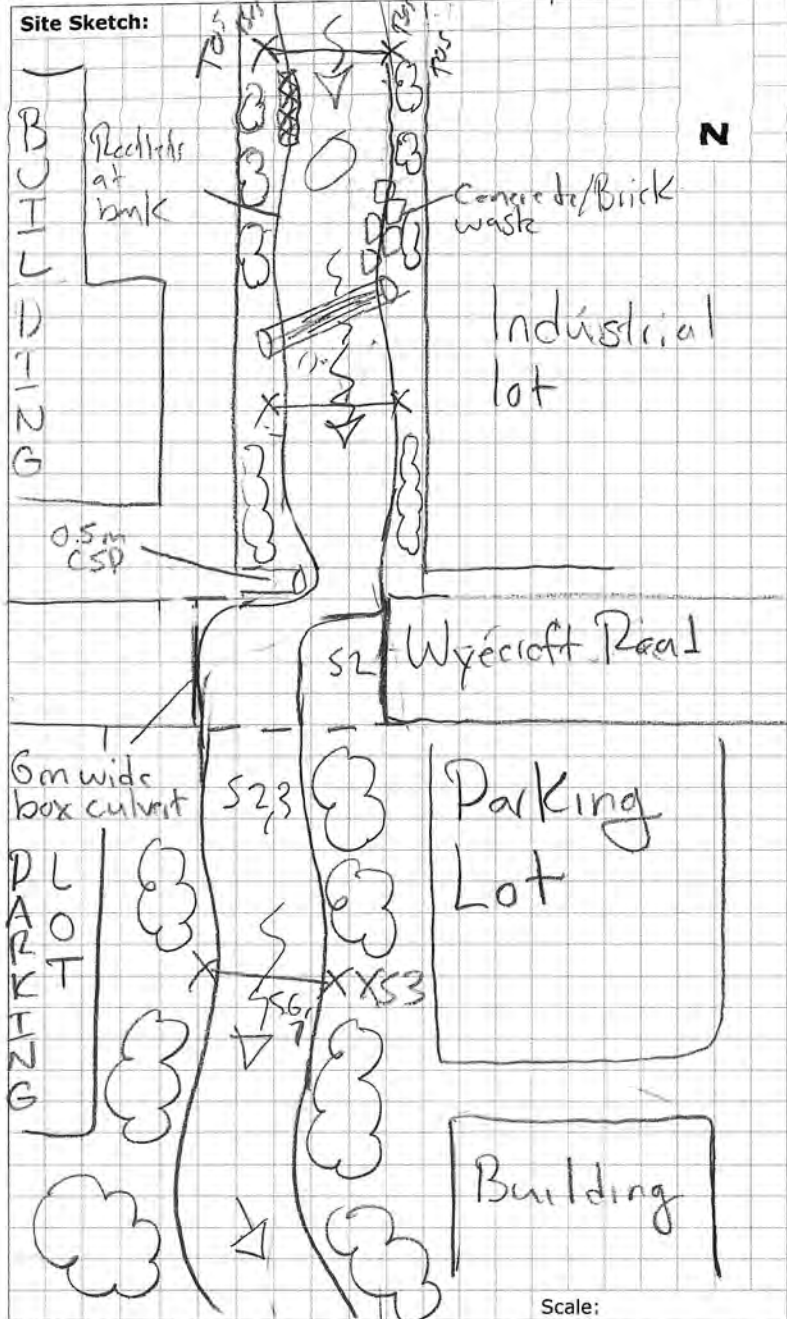 Site Sketch:
TOS
BS
BS
TOS
N
BUILDING
at
bank
Concrete/Brick
waste
Industrial
lot
0.5m
CSP
S2
Wyecroft Road
6m wide
box culvert
S2,3
Parking
Lot
PARKING
LOT
XS3
S6,
7
Building
Scale: